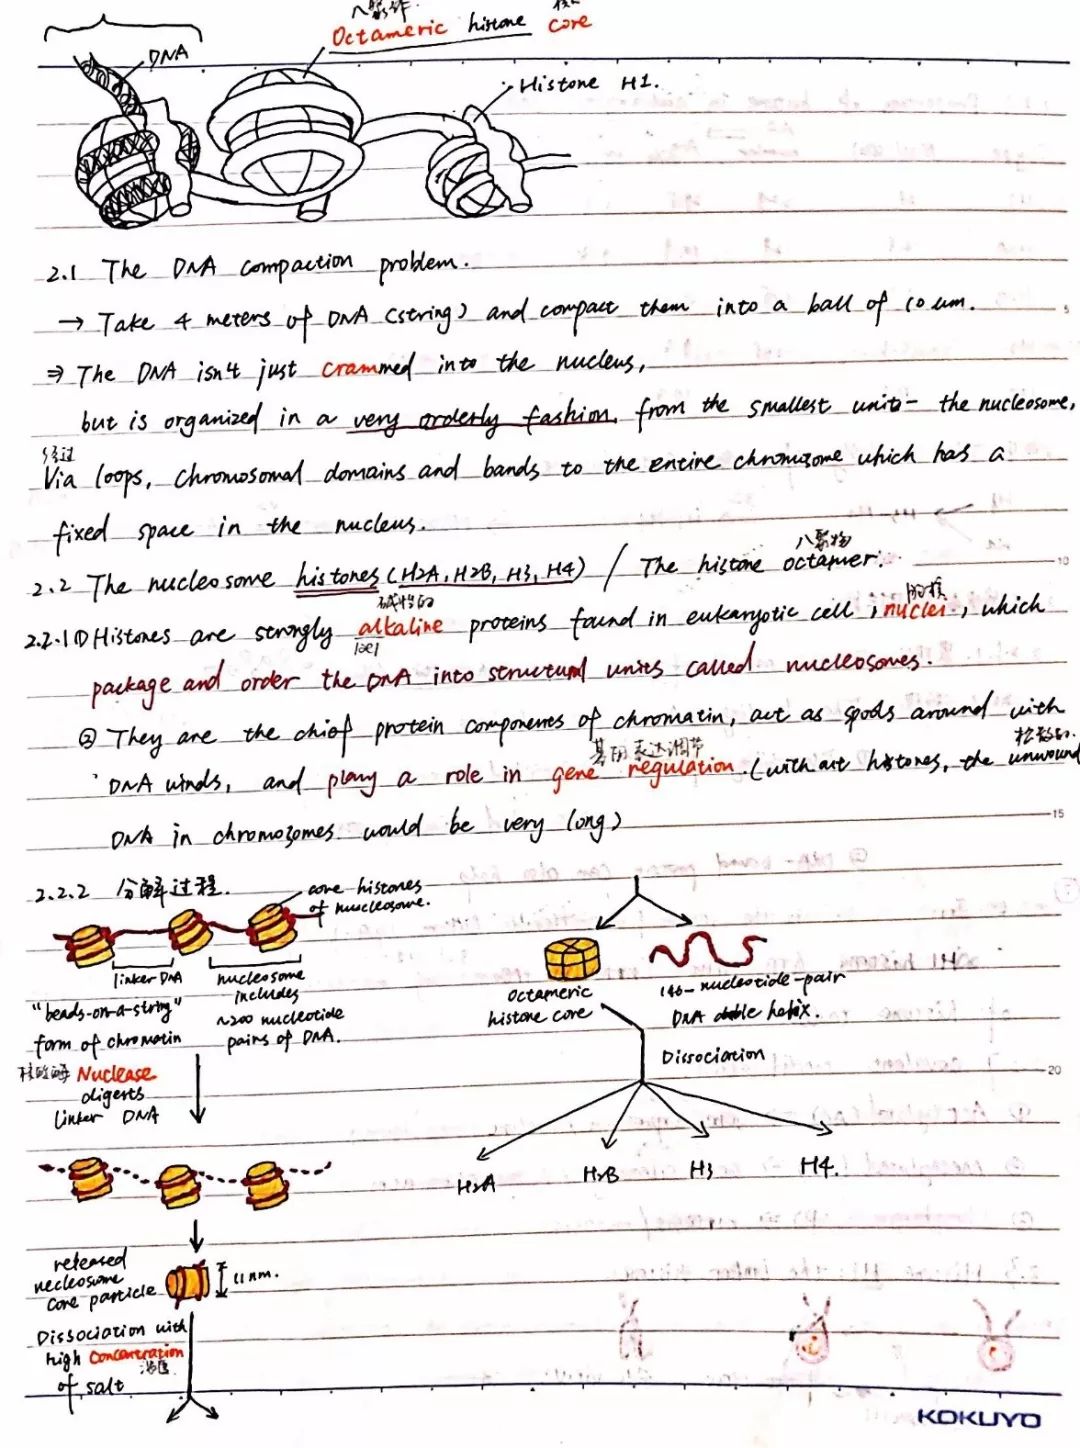 八聚体
Octameric histone core
DNA
Histone H1.
2.1 The DNA compaction problem.
→ Take 4 meters of DNA (string) and compact them into a ball of 10 um.
⇒ The DNA isn't just crammed into the nucleus,
but is organized in a very orderly fashion, from the smallest unit - the nucleosome,
经过
Via loops, chromosomal domains and bands to the entire chromosome which has a
fixed space in the nucleus.
八聚物
2.2 The nucleosome histones (H2A, H2B, H3, H4) / The histone octamer.
碱性的
的核
2.2.1 ① Histones are strongly alkaline proteins found in eukaryotic cell nuclei, which
package and order the DNA into structural units called nucleosomes.
② They are the chief protein components of chromatin, act as spools around with
基因表达调节
松散的.
DNA winds, and play a role in gene regulation. (without histones, the unwound
DNA in chromosomes would be very long)
15
2.2.2 分解过程.
core histones
of nucleosome.
linker DNA
nucleosome
includes
~200 nucleotide
pairs of DNA.
"beads-on-a-string"
form of chromatin
核酸酶 Nuclease
digests
linker DNA
released
necleosome
core particle
11 nm.
Dissociation with
high concentration
浓度
of salt
Octameric
histone core
146-nucleotide-pair
DNA double helix.
Dissociation
20
H2A
H2B
H3
H4.
KOKUYO